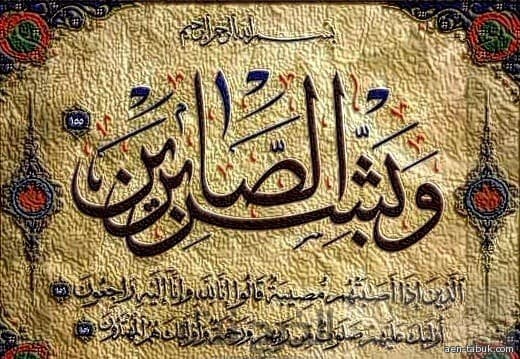 بسم الله الرحمن الرحيم
وبشر الصابرين ١٥٥
الذين إذا أصابتهم مصيبة قالوا إنا لله وإنا إليه راجعون ١٥٦
أولئك عليهم صلوات من ربهم ورحمة وأولئك هم المهتدون ١٥٧
aen-tabuk.com